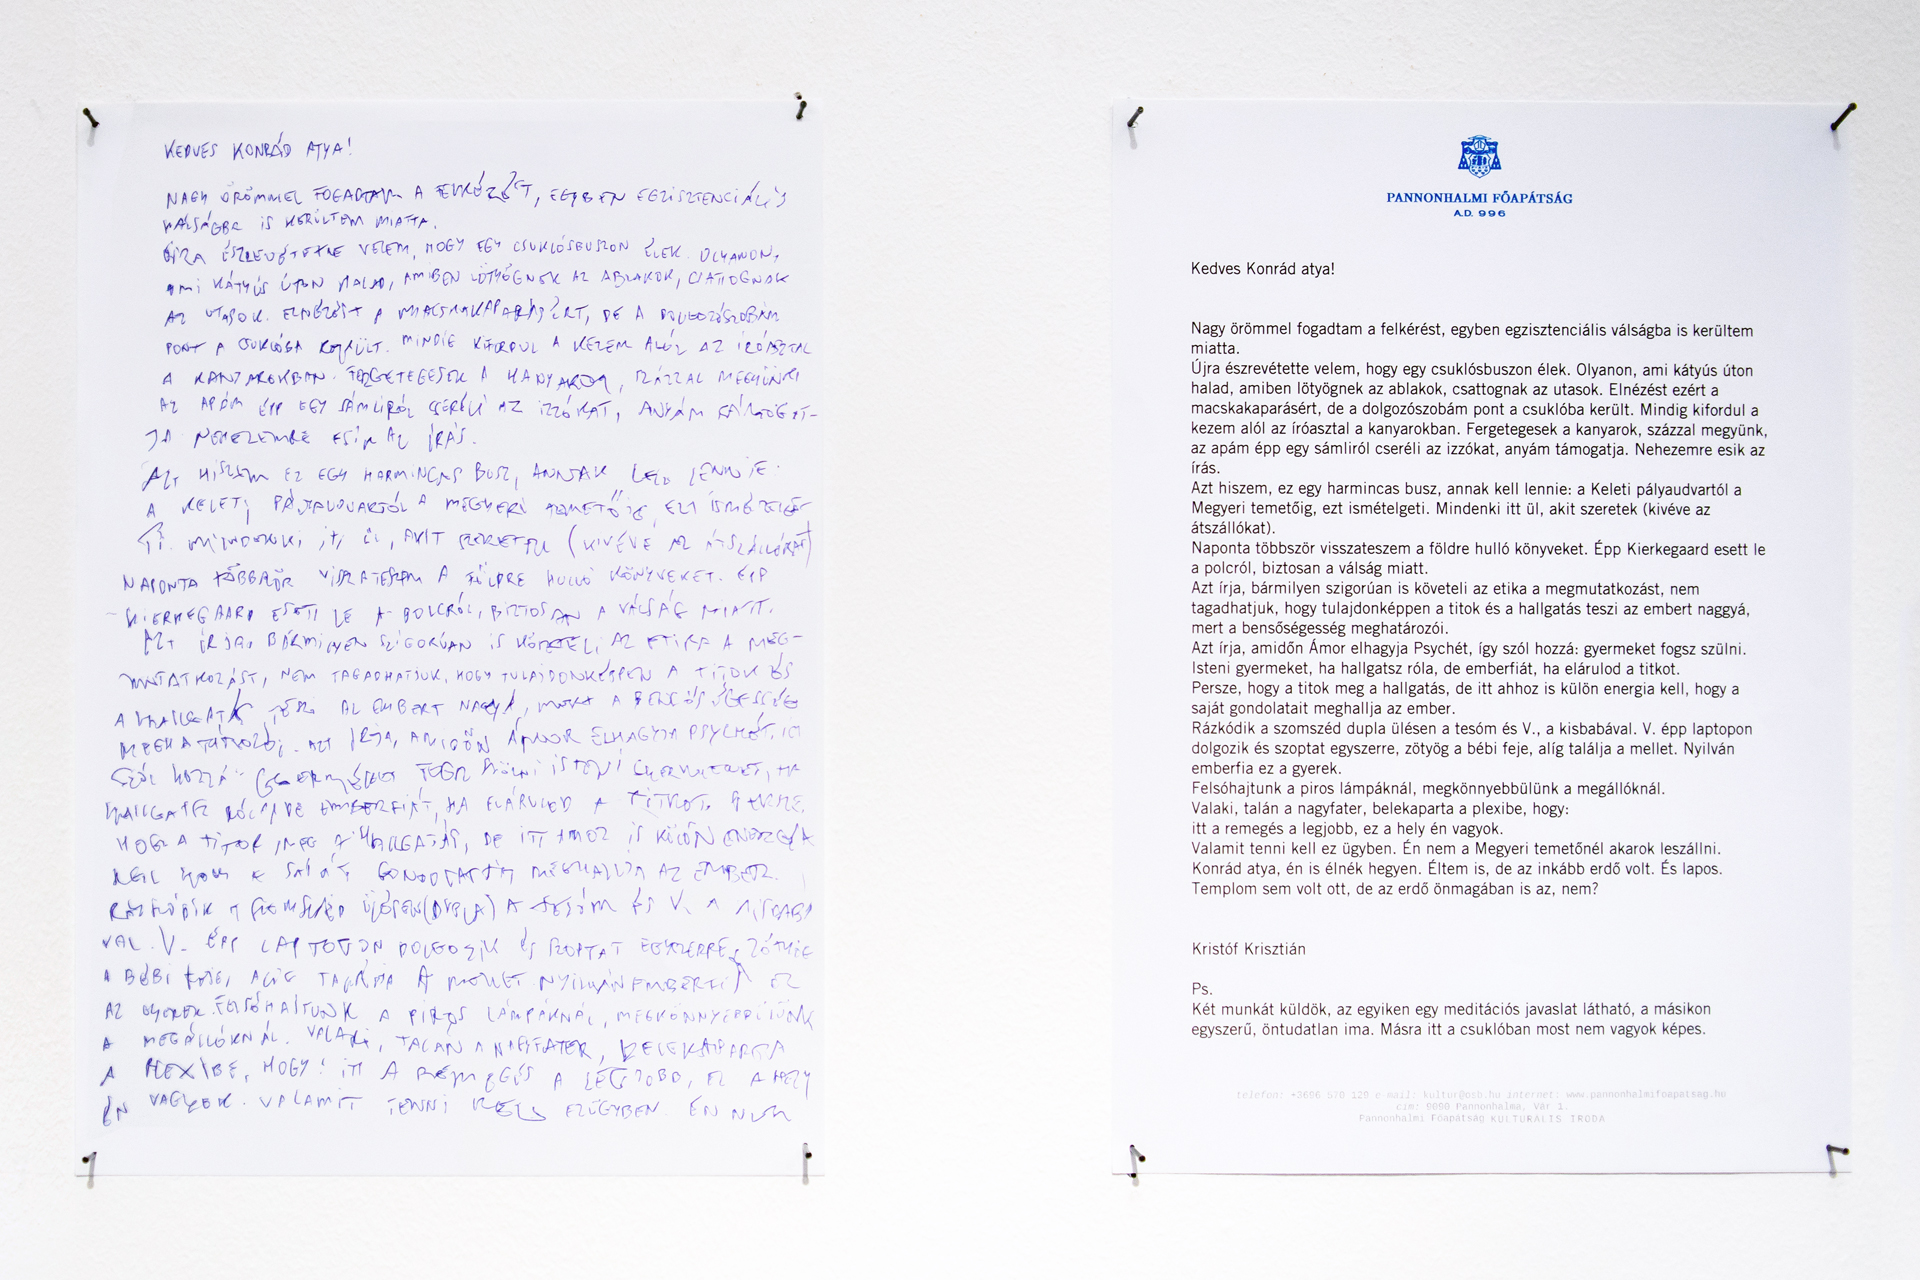 KEDVES KONRÁD ATYA!
NAGY ÖRÖMMEL FOGADTAM A EGYBEN EGZISZTENCIÁLIS
VÁLSÁGBA IS KERÜLTEM MIATTA.
ÚJRA ÉSZREVÉTETTE VELEM, HOGY EGY CSUKLÓSBUSZON ÉLEK. OLYANON,
AMI KÁTYÚS ÚTON HALAD, AMIBEN LÖTYÖGNEK AZ ABLAKOK, CSATTOGNAK
AZ UTASOK. ELNÉZÉST A MACSKAKAPARÁSÉRT, DE A DOLGOZÓSZOBÁM
PONT A CSUKLÓBA KERÜLT. MINDIG KIFORDUL A KEZEM ALÓL AZ ÍRÓASZTAL
A KANYAROKBAN. FERGETEGESEK A KANYAROK, SZÁZZAL MEGYÜNK
AZ APÁM ÉPP EGY SÁMLIRÓL CSERÉLI AZ IZZÓKAT, ANYÁM TÁMOGAT-
JA NEHEZEMRE ESIK AZ ÍRÁS.
AZT HISZEM EZ EGY HARMINCAS BUSZ, ANNAK KELL LENNIE:
A KELETI PÁLYAUDVARTÓL A MEGYERI TEMETŐIG, EZT ISMÉTELGE-
TI. MINDENKI ITT ÜL, AKIT SZERETEK (KIVÉVE AZ ÁTSZÁLLÓKAT)
NAPONTA TÖBBSZÖR VISSZATESZEM A FÖLDRE HULLÓ KÖNYVEKET. ÉPP
KIERKEGAARD ESETT LE A POLCRÓL, BIZTOSAN A VÁLSÁG MIATT.
AZT ÍRJA, BÁRMILYEN SZIGORÚAN IS KÖVETELI AZ ETIKA A MEG-
MUTATKOZÁST, NEM TAGADHATJUK, HOGY TULAJDONKÉPPEN A TITOK ÉS
A HALLGATÁS TESZI AZ EMBERT NAGGYÁ, MERT A BENSŐSÉGESSÉG
MEGHATÁROZÓI. AZT ÍRJA, AMIDŐN ÁMOR ELHAGYJA PSYCHÉT, ÍGY
SZÓL HOZZÁ: GYERMEKET FOGSZ SZÜLNI ISTENI GYERMEKET, HA
HALLGATSZ RÓLA, DE EMBERFIÁT, HA ELÁRULOD A TITKOT. PERSZE,
HOGY A TITOK MEG A HALLGATÁS, DE ITT AHHOZ IS KÜLÖN ENERGIA
KELL HOGY A SAJÁT GONDOLATAIT MEGHALLJA AZ EMBER.
RÁZKÓDIK A SZOMSZÉD ÜLÉSEN (DUPLA) A TESÓM ÉS V. A KISBABÁ
VAL. V. ÉPP LAPTOPON DOLGOZIK ÉS SZOPTAT EGYSZERRE, ZÖTYÖG
A BÉBI FEJE, ALIG TALÁLJA A MELLET. NYILVÁN EMBERFIA EZ
AZ GYEREK. FELSÓHAJTUNK A PIROS LÁMPÁKNÁL, MEGKÖNNYEBBÜLÜNK
A MEGÁLLÓKNÁL. VALAKI, TALÁN A NAGYFATER, BELEKAPARTA
A PLEXIBE, HOGY: ITT A REMEGÉS A LEGJOBB, EZ A HELY
ÉN VAGYOK. VALAMIT TENNI KELL EZ ÜGYBEN. ÉN NEM
PANNONHALMI FŐAPÁTSÁG
A.D. 996
Kedves Konrád atya!
Nagy örömmel fogadtam a felkérést, egyben egzisztenciális válságba is kerültem
miatta.
Újra észrevétette velem, hogy egy csuklósbuszon élek. Olyanon, ami kátyús úton
halad, amiben lötyögnek az ablakok, csattognak az utasok. Elnézést ezért a
macskakaparásért, de a dolgozószobám pont a csuklóba került. Mindig kifordul a
kezem alól az íróasztal a kanyarokban. Fergetegesek a kanyarok, százzal megyünk,
az apám épp egy sámliról cseréli az izzókat, anyám támogatja. Nehezemre esik az
írás.
Azt hiszem, ez egy harmincas busz, annak kell lennie: a Keleti pályaudvartól a
Megyeri temetőig, ezt ismételgeti. Mindenki itt ül, akit szeretek (kivéve az
átszállókat).
Naponta többször visszateszem a földre hulló könyveket. Épp Kierkegaard esett le
a polcról, biztosan a válság miatt.
Azt írja, bármilyen szigorúan is követeli az etika a megmutatkozást, nem
tagadhatjuk, hogy tulajdonképpen a titok és a hallgatás teszi az embert naggyá,
mert a bensőségesség meghatározói.
Azt írja, amidőn Ámor elhagyja Psychét, így szól hozzá: gyermeket fogsz szülni.
Isteni gyermeket, ha hallgatsz róla, de emberfiát, ha elárulod a titkot.
Persze, hogy a titok meg a hallgatás, de itt ahhoz is külön energia kell, hogy a
saját gondolatait meghallja az ember.
Rázkódik a szomszéd dupla ülésen a tesóm és V., a kisbabával. V. épp laptopon
dolgozik és szoptat egyszerre, zötyög a bébi feje, alíg találja a mellet. Nyilván
emberfia ez a gyerek.
Felsóhajtunk a piros lámpáknál, megkönnyebbülünk a megállóknál.
Valaki, talán a nagyfater, belekaparta a plexibe, hogy:
itt a remegés a legjobb, ez a hely én vagyok.
Valamit tenni kell ez ügyben. Én nem a Megyeri temetőnél akarok leszállni.
Konrád atya, én is élnék hegyen. Éltem is, de az inkább erdő volt. És lapos.
Templom sem volt ott, de az erdő önmagában is az, nem?
Kristóf Krisztián
Ps.
Két munkát küldök, az egyiken egy meditációs javaslat látható, a másikon
egyszerű, öntudatlan ima. Másra itt a csuklóban most nem vagyok képes.
telefon: +3696 570 129 e-mail: kultur@osb.hu internet: www.pannonhalmifoapatsag.hu
cím: 9090 Pannonhalma, Vár 1.
Pannonhalmi Főapátság KULTURÁLIS IRODA